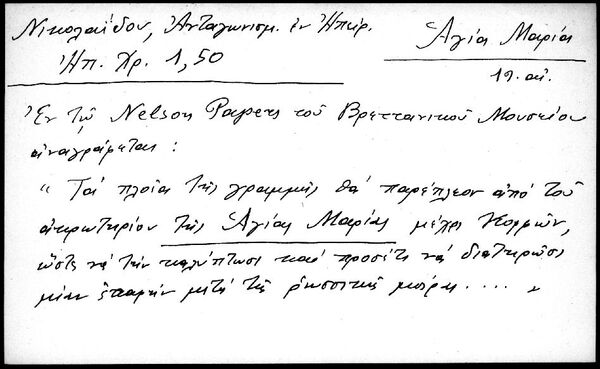 Νικολαΐδου, Ἀνταγωνισμ. ἐν Ἠπείρ.
Ἠπ. Χρ. 1,50
Ἁγίας Μαρίας
19. αἰ.
Ἐν τῷ Nelson Papers τοῦ Βρεττανικοῦ Μουσείου
ἀναγράφεται :
" Τά πλοῖα τῆς γραμμῆς θά παρέπλεον ἀπό τοῦ
ἀκρωτηρίου τῆς Ἁγίας Μαρίας μέχρι
ὥστε νά τήν καλύπτωσι καί προσέτι νά διατηρῶσι
μίαν ἐπαφήν μετά τῆς ρωσσικῆς μοίρας .... "